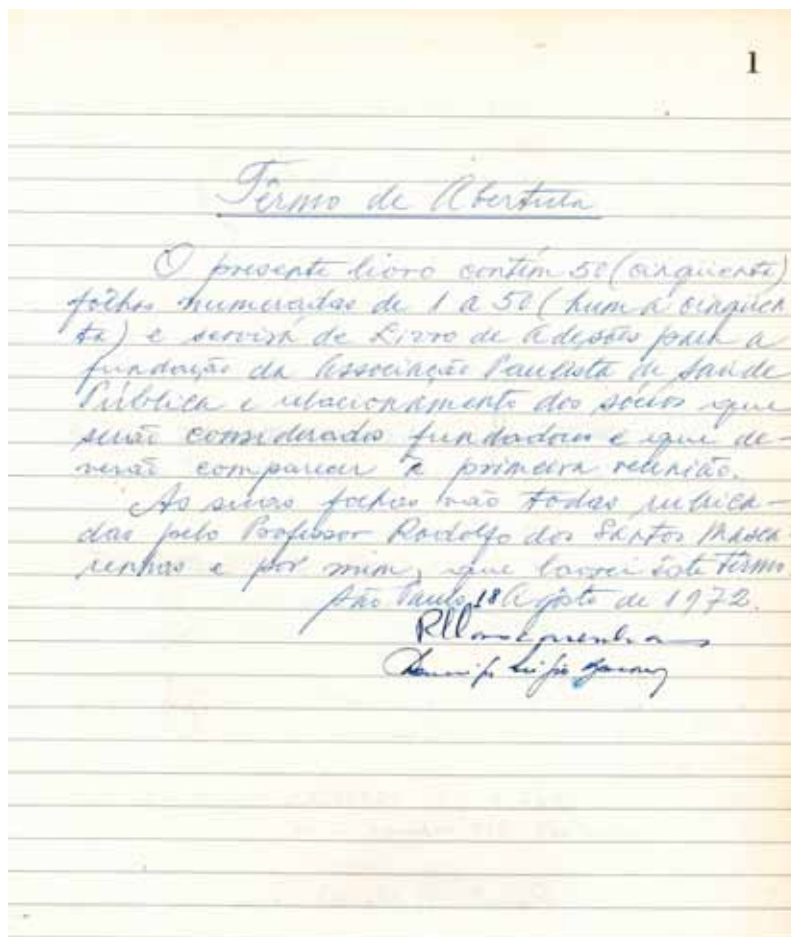 1
Têrmo de Abertura
O presente livro contém 50 (cinqüenta)
fôlhas numeradas de 1 a 50 (hum a cinqüen
ta) e servirá de Livro de Adesões para a
fundação da Associação Paulista de Saúde
Pública e relacionamento dos sócios que
serão considerados fundadores e que de-
verão comparecer à primeira reunião.
As suas folhas vão todas rubrica-
das pelo Professor Rodolfo dos Santos Masca-
renhas e por mim, que lavrei êste têrmo
São Paulo, 18 Agôsto de 1972.